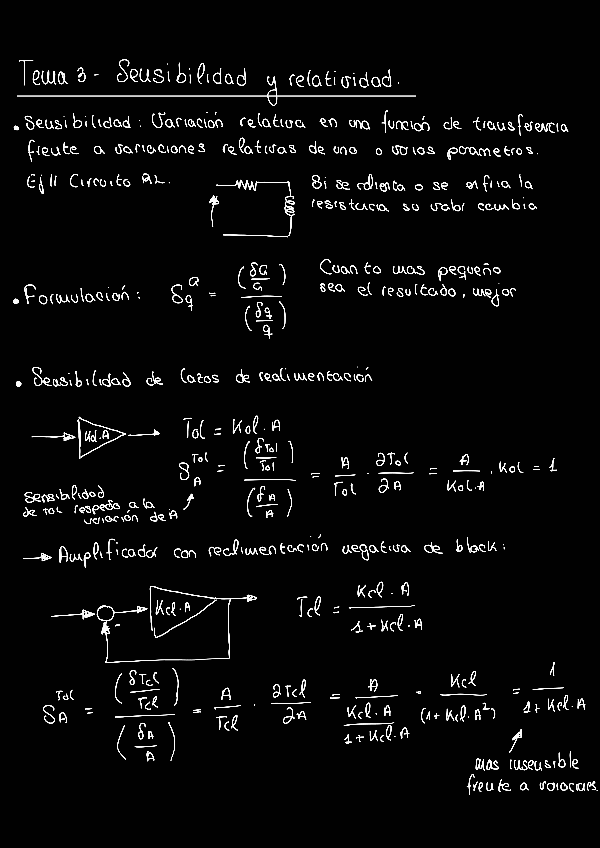 Tema 3 - Sensibilidad y relatividad.
• Sensibilidad: Variación relativa en una función de transferencia
frente a variaciones relativas de uno o varios parametros.
Ej 11 Circuito RL.
Si se calienta o se enfria la
resistencia su valor cambia
• Formulación: S_q^G = (δG/G) / (δq/q)
Cuanto mas pequeño
sea el resultado, mejor
• Sensibilidad de lazos de realimentación
Kol·A
Tol = Kol·A
S_A^Tol = (δTol/Tol) / (δA/A) = A/Tol · ∂Tol/∂A = A/(Kol·A) · Kol = 1
Sensibilidad
de Tol respecto a la
variación de A
→ Amplificador con realimentación negativa de black:
Kcl·A
-
Tcl = Kcl·A / (1+Kcl·A)
S_A^Tcl = (δTcl/Tcl) / (δA/A) = A/Tcl · ∂Tcl/∂A = A / (Kcl·A / (1+Kcl·A)) · Kcl / (1+Kcl·A²) = 1 / (1+Kcl·A)
mas insensible
frente a variaciones